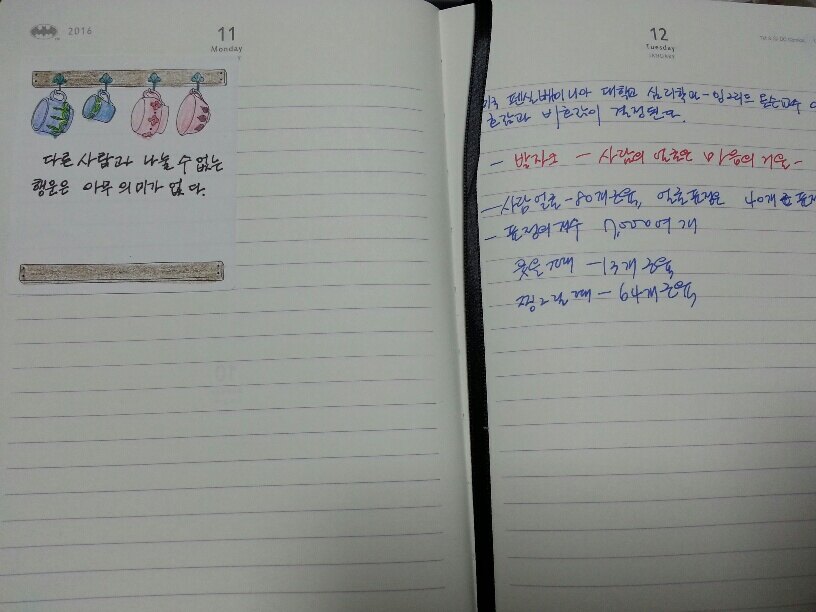 2016
11
Monday
다른 사람과 나눌 수 없는
행운은 아무 의미가 없다.
12
Tuesday
펜실베이니아 대학교 심리학과 - 잉그리드
호감과 비호감이 결정된다.
- 발자크 - 사람의 얼굴은 마음의 거울 -
- 사람 얼굴 - 80개 근육, 얼굴표정은 40개 근육
- 표정의 개수 7,000여 개
웃을 때 - 13개 근육
찡그릴 때 - 64개 근육